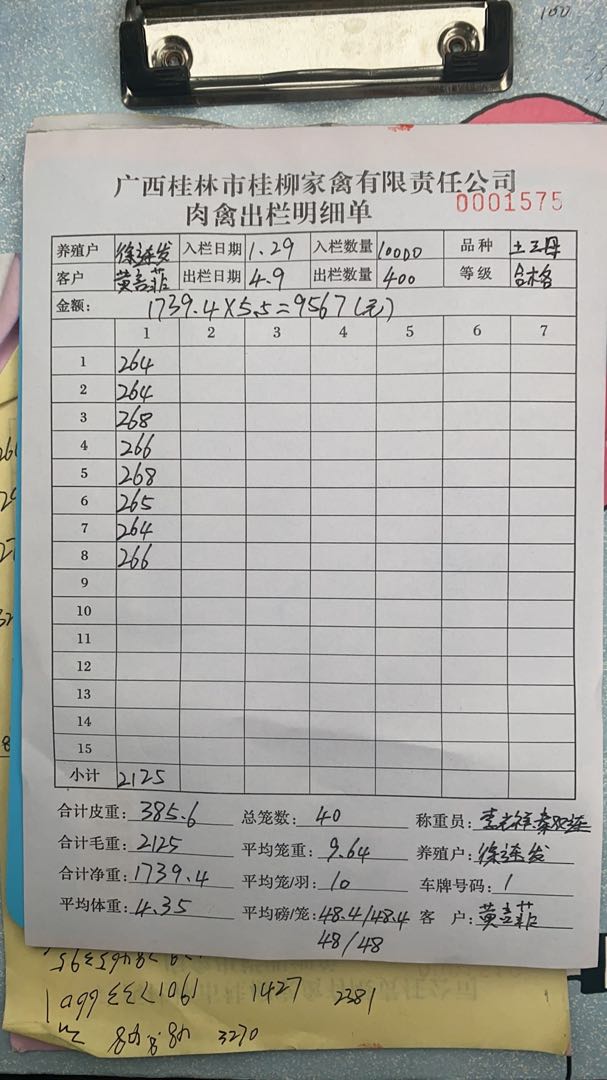 广西桂林市桂柳家禽有限责任公司
肉禽出栏明细单 0001575
养殖户 徐连发 入栏日期 1.29 入栏数量 10000 品种 土三母
客户 黄言菲 出栏日期 4.9 出栏数量 400 等级 合格
金额: 1739.4×5.5=9567(元)
1 2 3 4 5 6 7
1 264
2 264
3 268
4 266
5 268
6 265
7 264
8 266
9
10
11
12
13
14
15
小计 2125
合计皮重: 385.6 总笼数: 40 称重员:
合计毛重: 2125 平均笼重: 9.64 养殖户: 徐连发
合计净重: 1739.4 平均笼/羽: 10 车牌号码: 1
平均体重: 4.35 平均磅/笼: 48.4/48.4 客 户: 黄言菲
48/48
1427 2381
3270